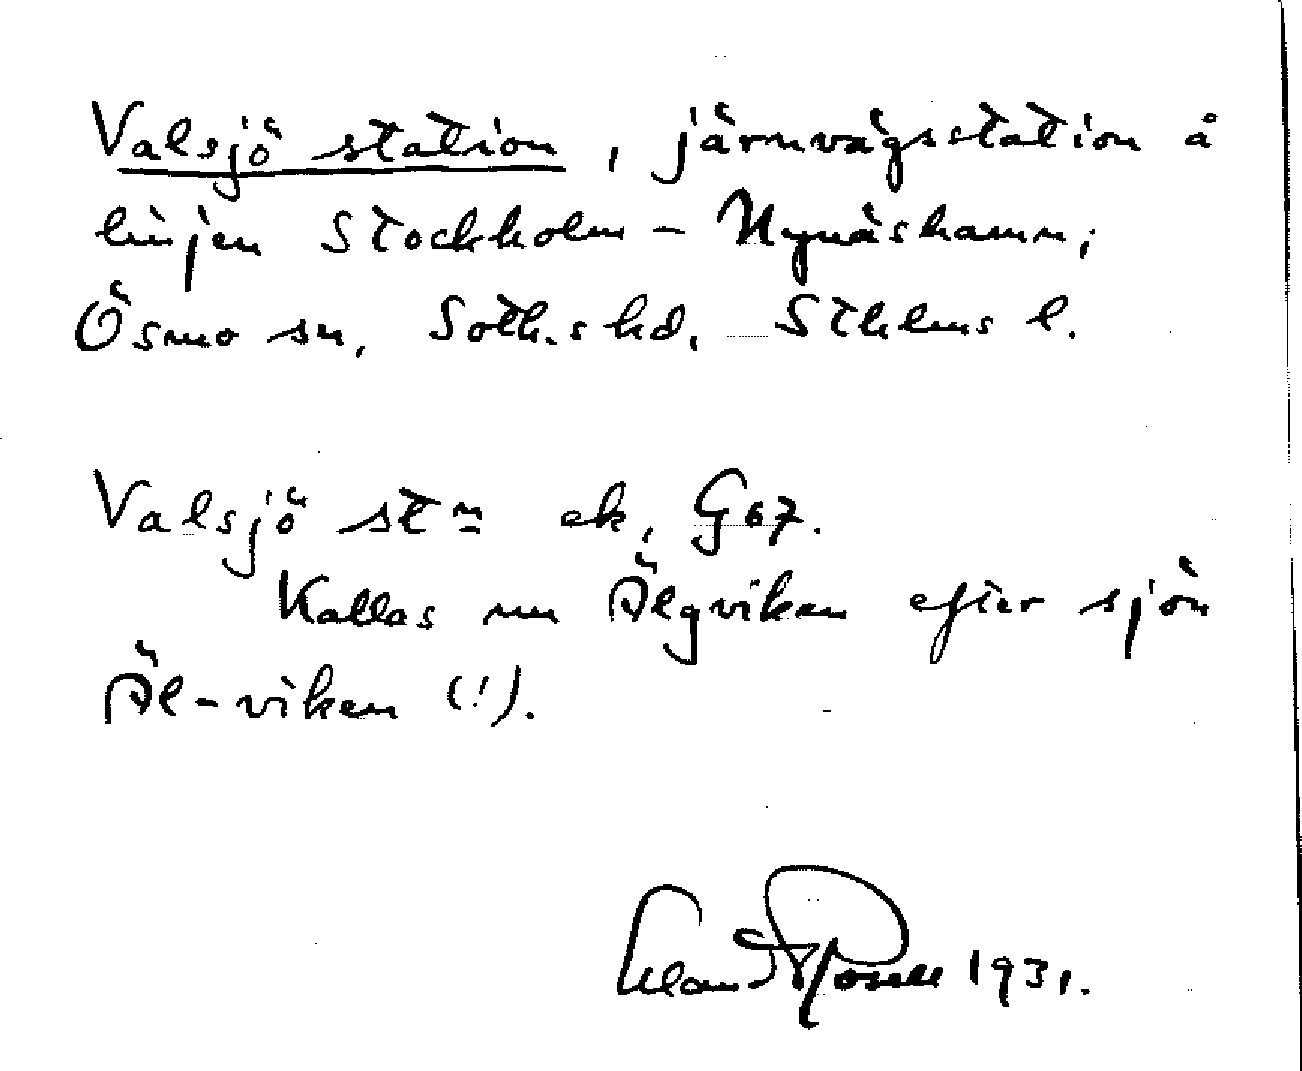 Valsjö station, järnvägsstation å
linjen Stockholm - Nynäshamn;
Ösmo sn, Soth.s hd, Sthlms l.
Valsjö stn ek, G 67.
Kallas nu Älgviken efter sjön
Äl-viken (!).
1931.